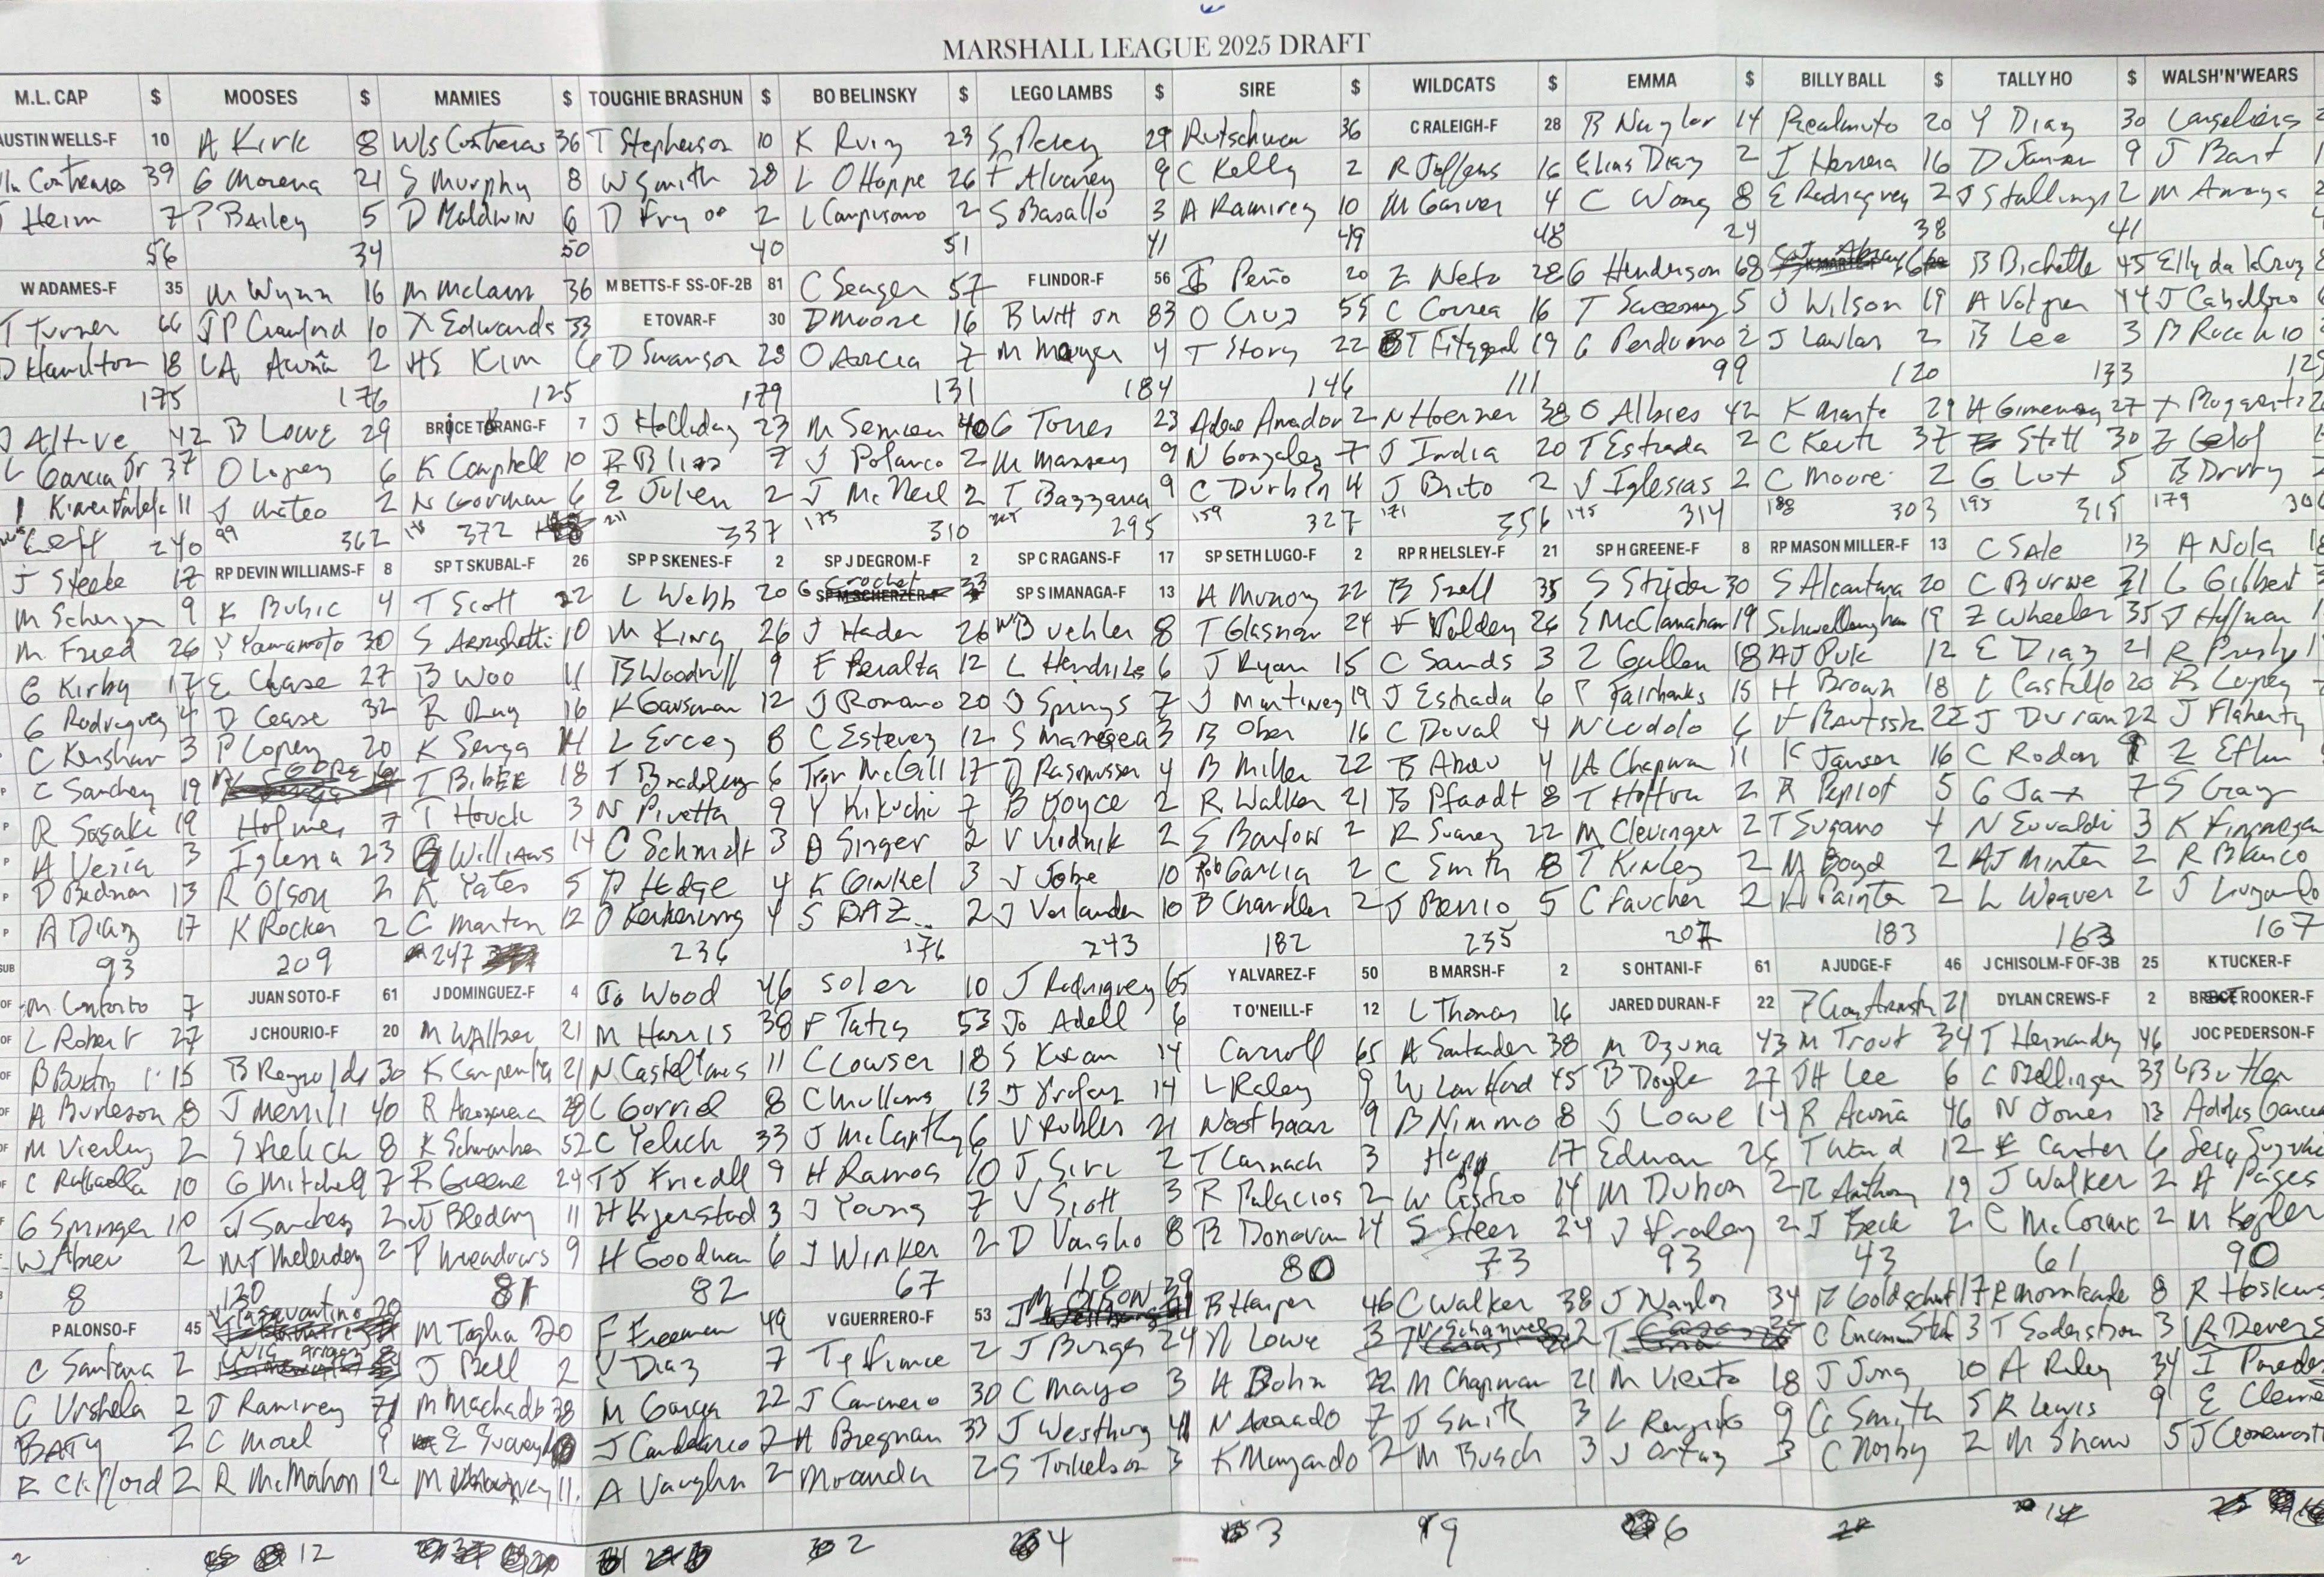 MARSHALL LEAGUE 2025 DRAFT
M.L. CAP $ MOOSES $ MAMIES $ TOUGHIE BRASHUN $ BO BELINSKY $ LEGO LAMBS $ SIRE $ WILDCATS $ EMMA $ BILLY BALL $ TALLY HO $ WALSH'N'WEARS
AUSTIN WELLS-F 10 A Kirk 8 Wls Contreras 36 T Stephenson 10 K Ruiz 23 S Perez 29 Rutschman 36 C RALEIGH-F 28 B Naylor 14 Realmuto 20 Y Diaz 30 Langeliers
Contreras 39 G Moreno 21 S Murphy 8 W Smith 28 L OHoppe 26 F Alvarez 9 C Kelly 2 R Jeffers 16 Elias Diaz 2 I Herrera 16 D Jansen 9 J Bart
J Heim 7 P Bailey 5 D Baldwin 6 D Fry 2 L Campusano 2 S Basallo 3 A Ramirez 10 M Garver 4 C Wong 8 E Rodriguez 2 J Stallings 2 M Amaya
56 34 50 40 51 41 49 48 24 38 41
W ADAMES-F 35 M Wynn 16 M McLain 36 M BETTS-F SS-OF-2B 81 C Seager 57 F LINDOR-F 56 J Peña 20 Z Neto 28 G Henderson 68 B Bichette 45 Elly da la Cruz
T Turner 66 JP Crawford 10 X Edwards 33 E TOVAR-F 30 D Moore 16 B Witt Jn 83 O Cruz 55 C Correa 16 T Saggese 5 J Wilson 19 A Volpe 44 J Caballero
D Hamilton 18 LA Acuña 2 HS Kim 6 D Swanson 28 O Arcia 7 M Mayer 4 T Story 22 T Fitzgerald 19 G Perdomo 2 J Lawlar 2 B Lee 3 B Rocchio
175 176 125 179 131 184 146 111 99 120 133
J Altuve 42 B Lowe 29 BRICE TURANG-F 7 J Holliday 23 M Semien 40 G Torres 23 Adae Amador 2 N Hoerner 38 O Albies 42 K Marte 29 A Gimenez 27
L Garcia Jr 37 O Lopez 6 K Campbell 10 R Bliss 7 J Polanco 2 M Massey 9 N Gonzales 7 J India 20 T Estrada 2 C Keith 37 Stott 30 Z Gelof
I Kiner Falefa 11 J Mateo 2 N Gorman 6 E Julien 2 J McNeil 2 T Bazzana 9 C Durbin 4 J Brito 2 J Iglesias 2 C Moore 2 G Lux 5 B Drury
Left 240 99 362 372 211 337 175 310 295 159 327 171 356 314 303 195 315 179
J Steele 17 RP DEVIN WILLIAMS-F 8 SP T SKUBAL-F 26 SP P SKENES-F 2 SP J DEGROM-F 2 SP C RAGANS-F 17 SP SETH LUGO-F 2 RP R HELSLEY-F 21 SP H GREENE-F 8 RP MASON MILLER-F 13 C Sale 13 A Nola
M Scherzer 9 K Bubic 4 T Scott 22 L Webb 20 G Crochet 33 SP S IMANAGA-F 13 A Munoz 22 B Snell 35 S Strider 30 S Alcantara 20 C Burne 31 L Gilbert
M Fried 26 Y Yamamoto 30 S Arrighetti 10 M King 26 J Hader 26 W Buehler 8 T Glasnow 24 F Valdez 26 S McClanahan 19 Schwellenbach 19 Z Wheeler 35 J Hoffman
G Kirby 17 E Chase 27 B Woo 11 B Woodruff 9 F Peralta 12 L Hendriks 6 J Ryan 15 C Sands 3 Z Gallen 18 AJ Puk 12 E Diaz 21 R Pressly
G Rodriguez 4 D Cease 32 R Ray 16 K Gausman 12 J Romano 20 J Springs 7 J Martinez 19 J Estrada 6 P Fairbanks 15 H Brown 18 L Castillo 20 R Lopez
C Kershaw 3 P Lopez 20 K Senga 14 L Ercey 8 C Estevez 12 S Manaea 3 B Ober 16 C Doval 4 N Lodolo 6 J Duran 22 J Flaherty
C Sanchez 19 T Bibee 18 T Bradley 6 Trev McGill 17 D Rasmussen 4 B Miller 22 B Abreu 4 A Chapman 11 K Jansen 16 C Rodon 9 Z Eflin
R Sasaki 19 Holmes 7 T Houck 3 N Pivetta 9 Y Kikuchi 7 B Joyce 2 R Walker 21 B Pfaadt 8 T Hoffman 2 R Pepiot 5 G Jax 7 S Gray
A Vesia 3 Iglesia 23 G Williams 14 C Schmidt 3 B Singer 2 V Vodnik 2 S Barlow 2 R Suarez 22 M Clevinger 2 T Sugano 4 N Eovaldi 3 K Finnegan
D Bednar 13 R Olson 2 K Yates 5 B Hedge 4 K Ginkel 3 J Jobe 10 Rob Garcia 2 C Smith 8 T Kinley 2 M Boyd 2 AJ Minter 2 R Blanco
A Diaz 17 K Rocker 2 C Morton 12 O Kerkering 4 S DIAZ 2 J Verlander 10 B Chandler 2 J Berrio 5 C Faucher 2 A Painter 2 L Weaver 2 J Lugardo
SUB 93 209 247 236 176 243 182 235 207 183 163 167
OF M Conforto 7 JUAN SOTO-F 61 J DOMINGUEZ-F 4 Ja Wood 46 Soler 10 J Rodriguez 65 Y ALVAREZ-F 50 B MARSH-F 2 S OHTANI-F 61 A JUDGE-F 46 J CHISOLM-F OF-3B 25 K TUCKER-F
OF L Robert 27 J CHOURIO-F 20 M Wallner 21 M Harris 38 F Tatis 53 Jo Adell 6 T O'NEILL-F 12 L Thomas 16 JARED DURAN-F 22 P Crow Armstr 21 DYLAN CREWS-F 2 BRENT ROOKER-F
OF B Buxton 15 B Reynolds 30 K Carpenter 21 N Castellanos 11 C Cowser 18 S Kwan 14 Carroll 65 A Santander 38 M Ozuna 43 M Trout 34 T Hernandez 46 JOC PEDERSON-F
OF A Burleson 8 J Merrill 40 R Arozarena 28 L Gurriel 8 C Mullins 13 J Profar 14 L Raley 9 W Langford 45 B Doyle 27 JH Lee 6 C Bellinger 33 L Butler
OF M Vierling 2 S Frelick 8 K Schwarber 52 C Yelich 33 J McCarthy 6 V Robles 21 Nootbaar 9 B Nimmo 8 J Lowe 14 R Acuña 46 N Jones 13 Adolis Garcia
C Rafaella 10 G Mitchell 7 R Greene 24 TJ Friedl 9 H Ramos 10 J Siri 2 T Carnach 3 Happ 17 Eduar 25 T Ward 12 E Carter 6 Seiya Suzuki
G Springer 10 J Sanchez 2 JJ Bleday 11 H Kjerstad 3 J Young 7 V Scott 3 R Palacios 2 W Castro 14 M Dubon 2 R Anthony 19 J Walker 2 A Pages
W Abreu 2 MJ Melendez 2 P Meadows 9 H Goodman 6 J Winker 2 D Varsho 8 B Donovan 24 S Steer 24 J Fraley 2 J Beck 2 C McCormic 2 M Kepler
8 130 81 82 67 110 80 73 93 43 61 90
P ALONSO-F 45 V Pasquantino 20 M Toglia 20 F Freeman 49 V GUERRERO-F 53 M Olson 39 B Harper 46 C Walker 38 J Naylor 34 P Goldschmt 17 R Mountcastle 8 R Hoskins
C Santana 2 J Bell 2 Y Diaz 7 Ty France 2 J Burger 24 N Lowe 3 N Schanuel 2 C Encarn Stnd 3 T Soderstrom 3 R Devers
G Urshela 2 J Ramirez 71 M Machado 38 M Garcia 22 J Caminero 30 C Mayo 3 A Bohm 22 M Chapman 21 M Viento 18 J Jung 10 A Riley 34 I Paredes
BATY 2 C Morel 9 E Suarez J Candelario 2 A Bregman 33 J Westburg 41 N Arenado 7 J Smith 3 L Rengifo 9 C Smith 5 R Lewis 9 E Clement
K Clifford 2 R McMahon 12 11 A Vaughn 2 Miranda 2 S Torkelson 3 K Manzardo 2 M Busch 3 J Ortiz 3 C Norby 2 M Shaw 5
2 12 2 4 3 9 6 14